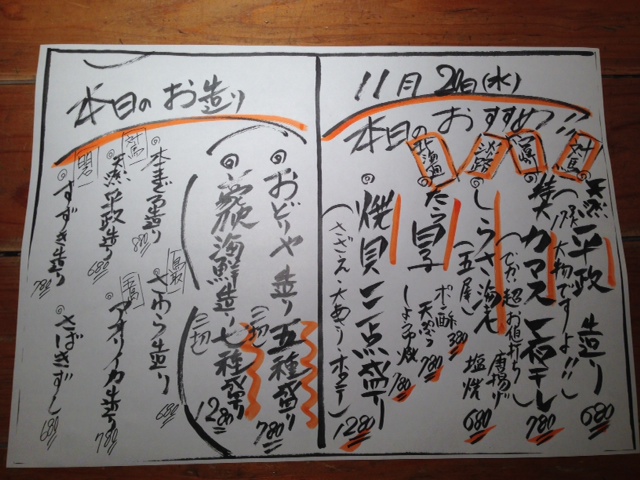 11月20日(水)
本日のおすすめ!!
対馬
天然平政造り 680
(17Kg大物ですよ!!)
炙カマス一夜干し 780
(でか!超お値打ち)
淡路
しらさ海老
(五尾)
唐揚げ
塩焼
680
北海道
たら白子
ポン酢 380
天ぷら 780
しょうゆ焼 780
焼貝三点盛り 1280
(さざえ・大あさり・ホタテ)
本日のお造り
おどりや造り五種盛り 780
(二切)
海鮮造り七種盛り 1280
(二切)
対馬
本まぐろ造り 880
天然平政造り 680
明石
すずき造り 780
鳥取
さわら造り 680
アオリイカ造り 780
さばきずし 680